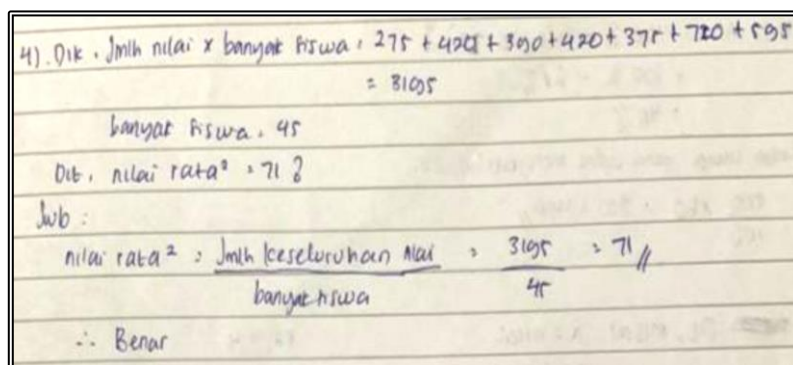 4). Dik. Jmlh nilai x banyak siswa = 275 + 420 + 390 + 420 + 375 + 720 + 595
= 3195
banyak siswa. 45
Dit. nilai rata² = 71 ?
Jwb :
nilai rata² = Jmlh keseluruhan nilai = 3195 = 71 //
banyak siswa 45
∴ Benar